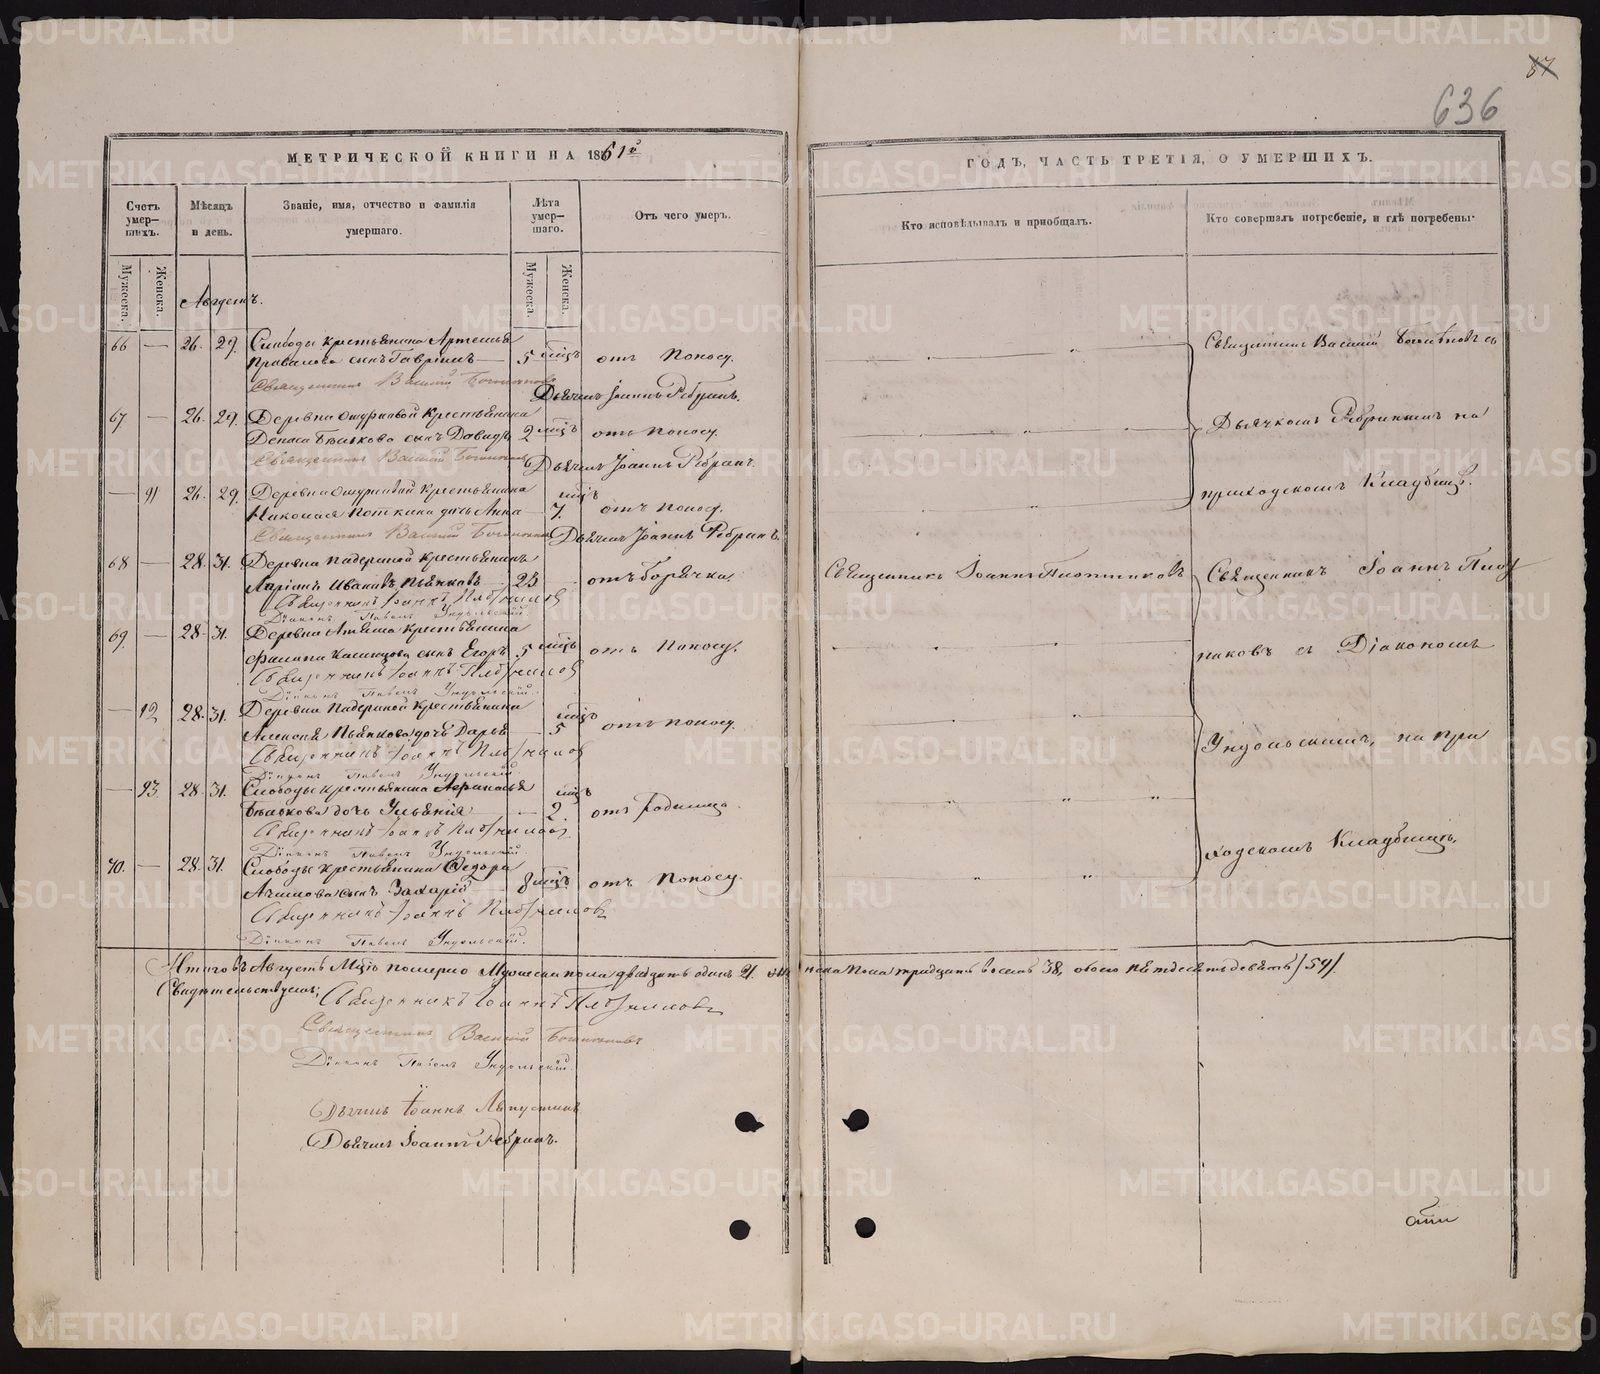 87
636
МЕТРИЧЕСКОЙ КНИГИ НА 1861й
ГОДЪ, ЧАСТЬ ТРЕТІЯ, О УМЕРШИХЪ.
Счетъ умер-шихъ.
Мѣсяцъ и день.
Званіе, имя, отчество и фамилія умершаго.
Лѣта умер-шаго.
Отъ чего умеръ.
Кто исповѣдывалъ и пріобщалъ.
Кто совершалъ погребеніе, и гдѣ погребены.
Мужеска.
Женска.
Мужеска.
Женска.
Августъ.
66 — 26. 29. Слободы крестьянина Артемья
Привалова сынъ Гавріилъ — 5 мцъ отъ поносу.
Священникъ Василій
Дьячекъ Іоаннъ Ребринъ.
67 — 26. 29. Деревни Ошурковой крестьянина
Дениса Бѣлькова сынъ Давидъ 2 мцъ отъ поносу.
Священникъ Василій
Дьячекъ Іоаннъ Ребринъ.
— 91 26. 29. Деревни Ошурковой крестьянина
Николая Поткина дочь Анна — 7. мцъ отъ поносу.
Священникъ Василій
Дьячекъ Іоаннъ Ребринъ.
Священникъ Василій съ
Дьячкомъ Ребринымъ на
приходскомъ кладбищѣ.
68 — 28. 31. Деревни Падериной крестьянинъ
Иванов Пьянковъ 23 отъ горячки.
Священникъ Іоаннъ Плотниковъ
Діаконъ Павелъ Ундольскій.
Священникъ Іоаннъ Плотниковъ
69. — 28. 31. Деревни крестьянина
Филипа сынъ Егоръ 5 мцъ отъ поносу.
Священникъ Іоаннъ Плотниковъ
Діаконъ Павелъ Ундольскій.
— 92 28. 31. Деревни Падериной крестьянина
Алексѣя Пьянкова дочь Дарья — 5 мцъ отъ поносу.
Священникъ Іоаннъ Плотниковъ
Діаконъ Павелъ Ундольскій.
— 93. 28. 31. Слободы крестьянина Аѳанасья
Бѣлькова дочь Ульянія — 2. мцъ отъ родимца.
Священникъ Іоаннъ Плотниковъ
Діаконъ Павелъ Ундольскій.
70. — 28. 31. Слободы крестьянина Ѳедора
сынъ Захарій 8 мцъ отъ поносу.
Священникъ Іоаннъ Плотниковъ
Діаконъ Павелъ Ундольскій.
Священникъ Іоаннъ Плот
никовъ съ Діакономъ
Ундольскимъ, на при
ходскомъ кладбищѣ.
Итого въ Августѣ мцѣ померло мужеска пола двадцать одинъ 21. женска пола тридцать восемь 38, обоего пятдесятъ девять /59/
Свидѣтельствуемъ: Священникъ Іоаннъ Плотниковъ
Священникъ Василій
Діаконъ Павелъ Ундольскій.
Дьячекъ Іоаннъ
Дьячекъ Іоаннъ Ребринъ.
METRIKI.GASO-URAL.RU